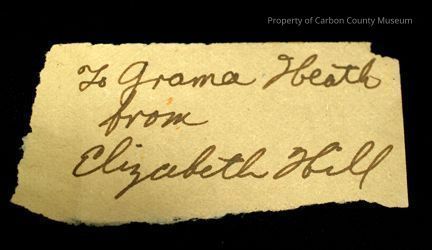 Property of Carbon County Museum
To Grama Heath
from
Elizabeth Hill